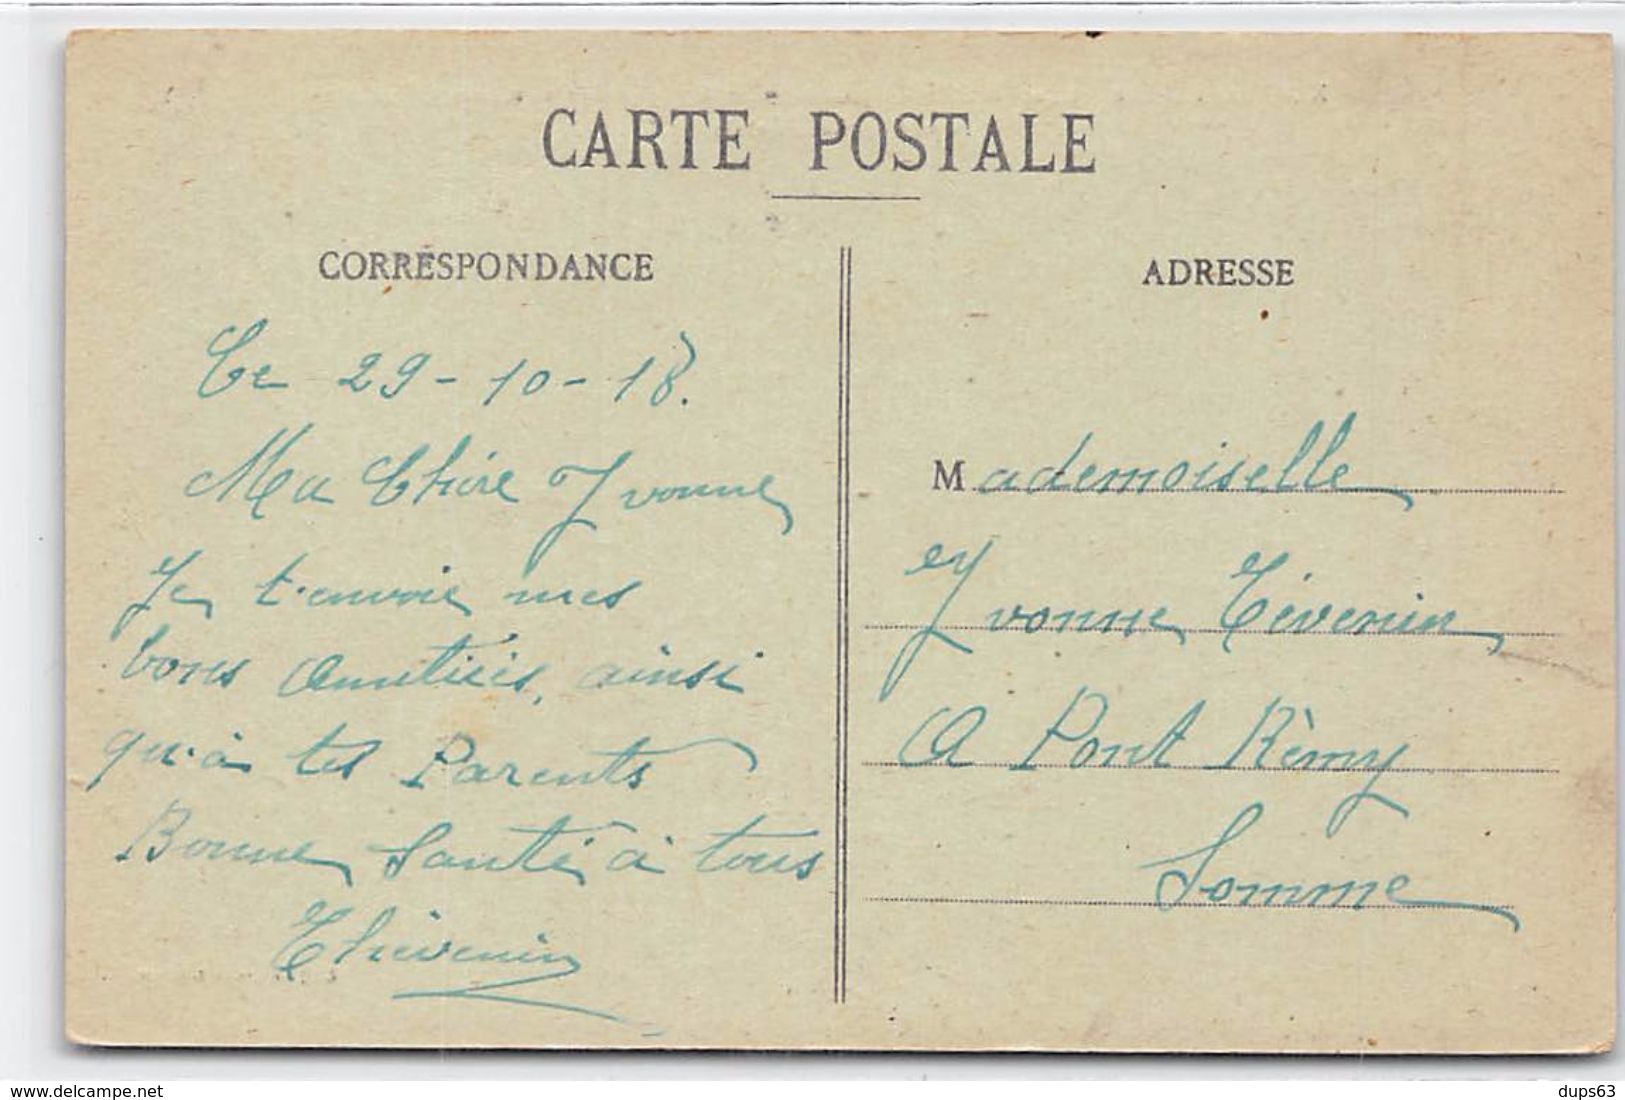 CARTE POSTALE
CORRESPONDANCE
Ce 29-10-18.
Ma Chère Yvonne
Je t'envoie mes
bons Amitiés, ainsi
qu'à tes Parents
Bonne Santé à tous
Thévenin
ADRESSE
Mademoiselle
Yvonne Tévenin
A Pont Rèmy
Somme
www.delcampe.net
dups63